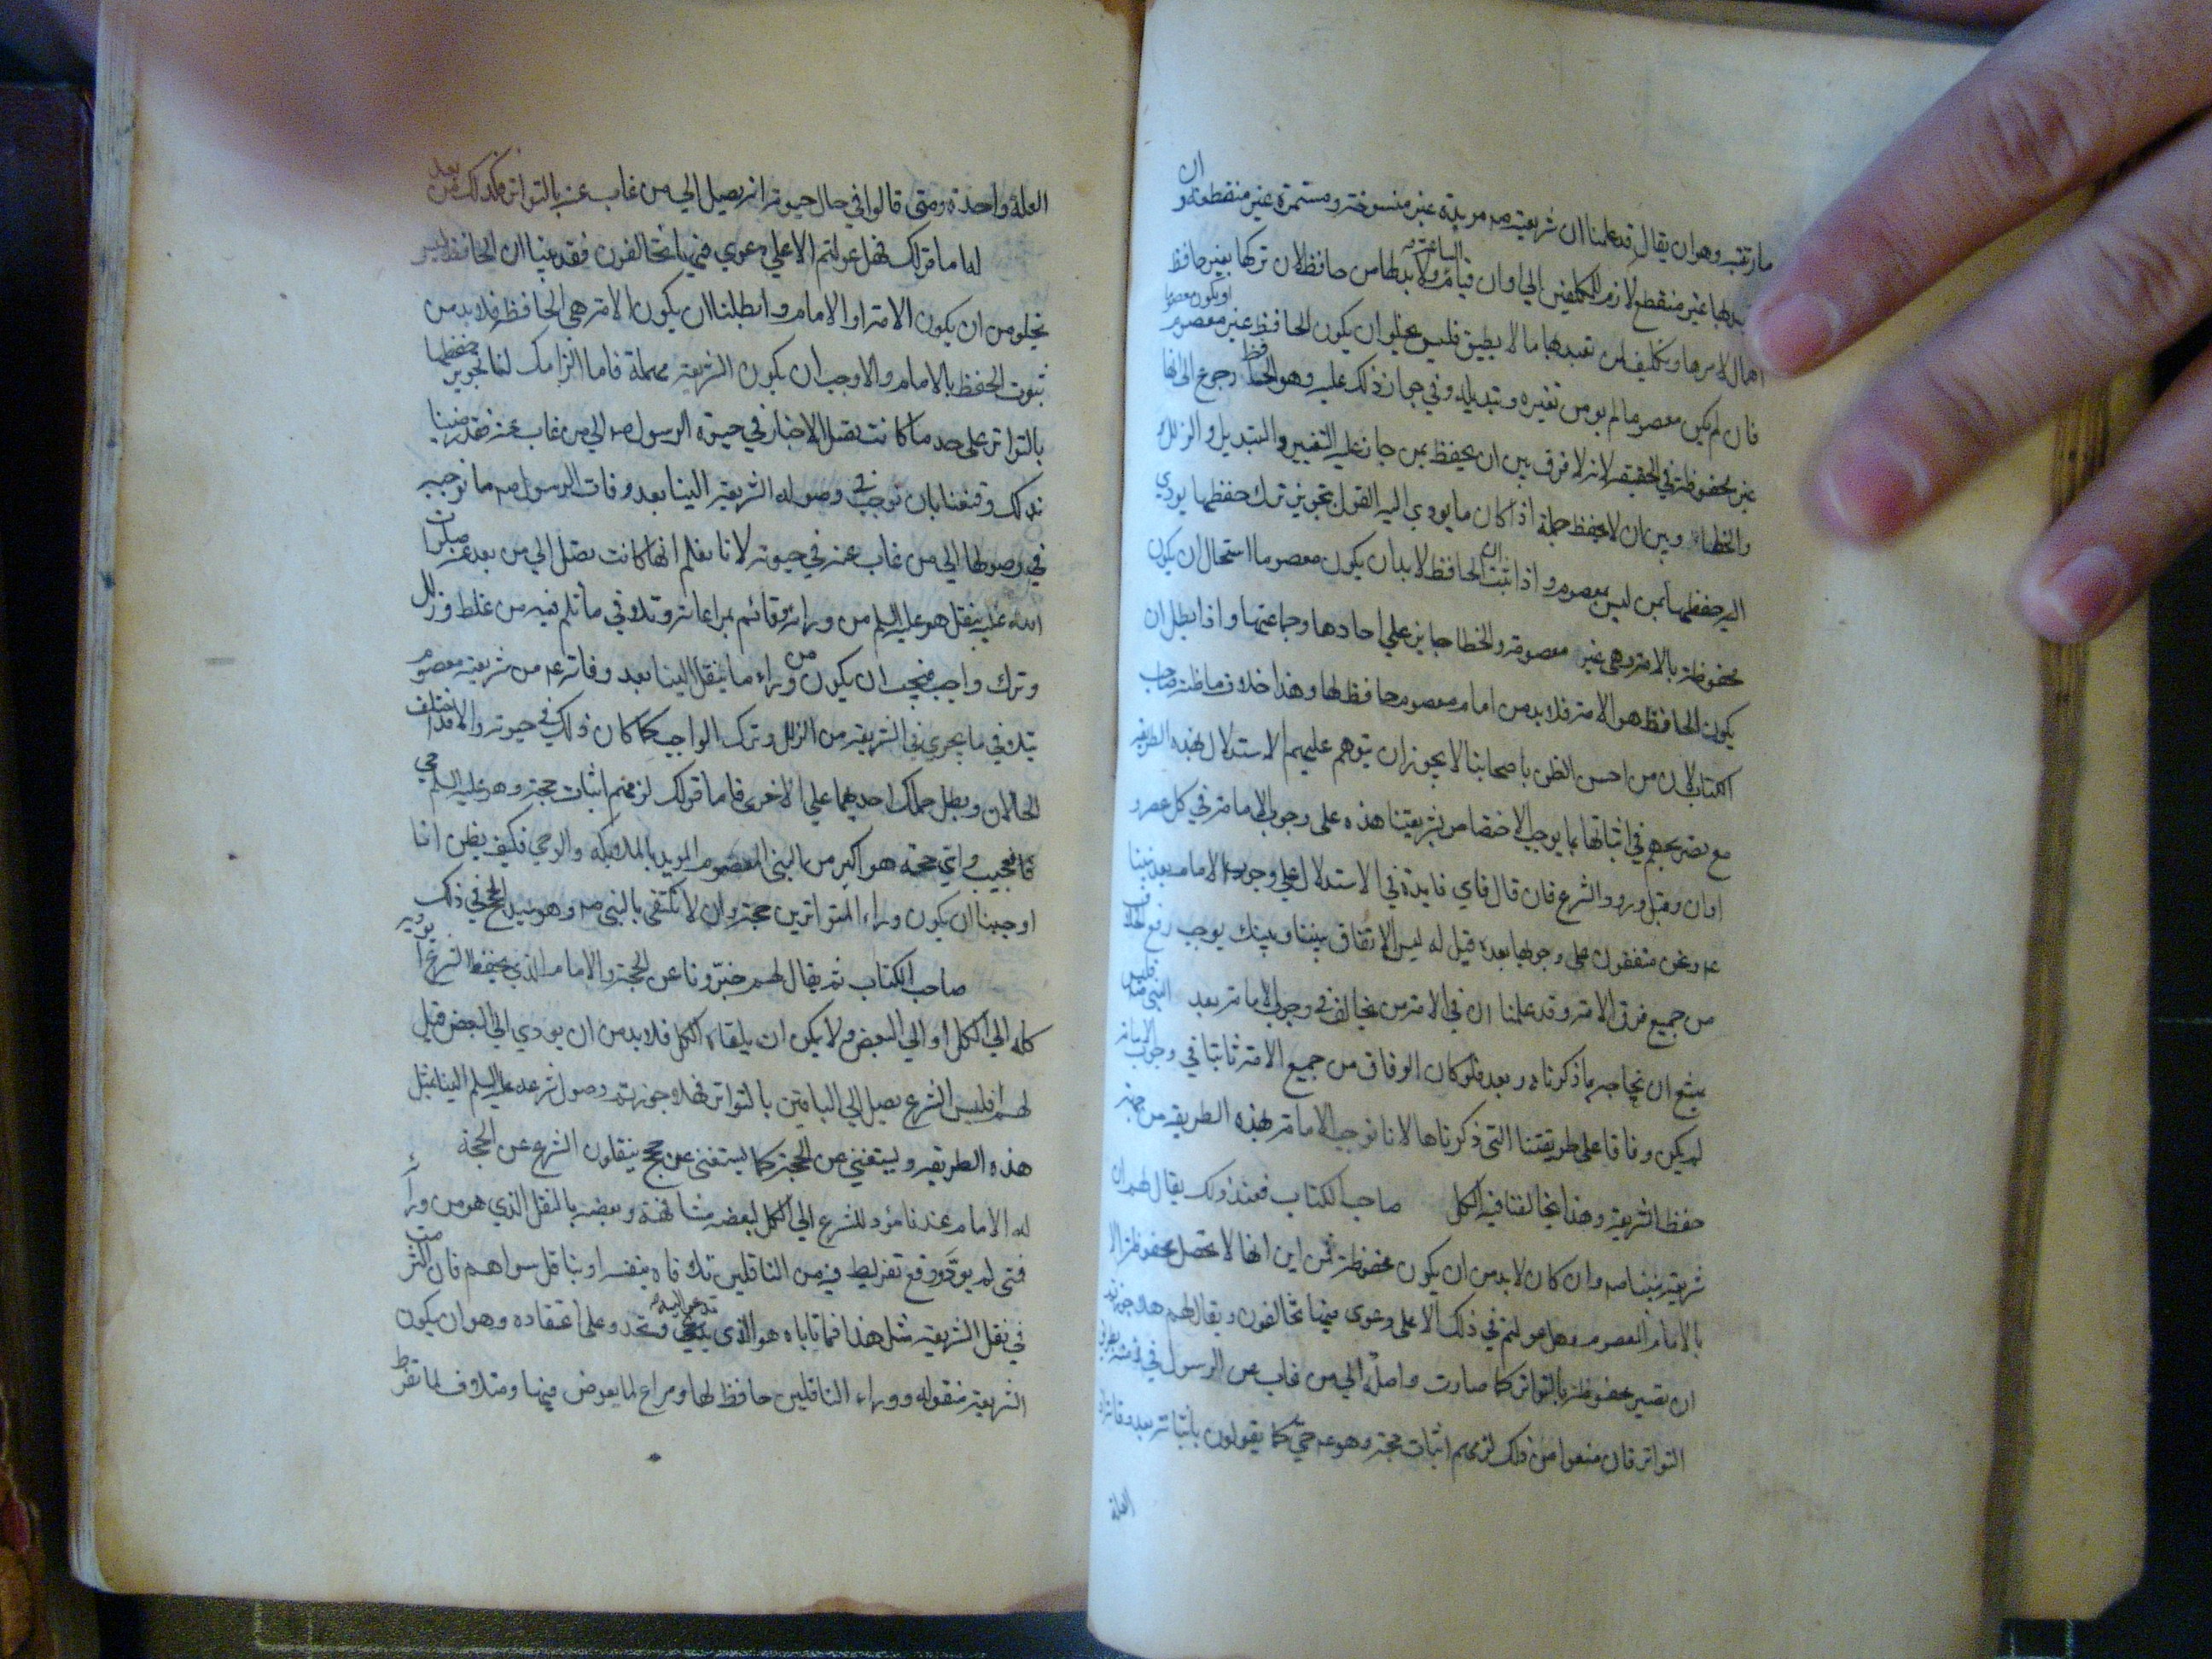 ما رتبته وهو ان يقال قد علمنا ان شريعته صه مؤيدة غير منسوخة ومستمرة غير منقطعة وان
التعبد بها غير منقطع لازم للمكلفين الي اوان قيام الساعة ولا بد لها من حافظ لان تركها بغير حافظ
اهمال لامرها وتكليف لمن تعبد بها ما لا يطيق فليس يخلو ان يكون الحافظ غير معصوم او يكون معصوما
فان لم يكن معصوما لم يومن تغيره وتبديله وفي جواز ذلك عليه وهو الحافظ رجوع الي انها
غير محفوظة في الحقيقة لانه لا فرق بين ان يحفظ بمن جاز عليه التغيير والتبديل والزلل
والخطاء وبين ان لا يحفظ جملة اذا كان ما يودي اليه القول بتجويز ترك حفظها يودي
اليه حفظها بمن ليس بمعصوم واذا ثبت ان الحافظ لا بد ان يكون معصوما استحال ان يكون
محفوظة بالامة وهي غير معصومة والخطا جايز علي احادها وجماعتها واذا بطل ان
يكون الحافظ هو الامة فلا بد من امام معصوم حافظ لها وهذا خلاف ما ظنه صاحب
الكتاب لان من احسن الظن باصحابنا لا يجوز ان يتوهم عليهم الاستدلال بهذه الطريقة
مع تصريحهم في اثباتها بما يوجب الاختصاص بشريعتنا هذه على وجوب الامامة في كل عصر و
اوان وقبل ورود الشرع فان قال فاي فايدة في الاستدلال علي وجوب الامام بعد نبينا
عه ونحن متفقون علي وجوبها بعده قيل له ليس الاتفاق بيننا وبينك يوجب رفع الخلاف
من جميع فرق الامة وقد علمنا ان في الامة من يخالف في وجوب الامامة بعد النبي فليس
يمتنع ان نحاجه بما ذكرناه وبعد فلو كان الوفاق من جميع الامة ثابتا في وجوب الامامة
لم يكن وفاقا على طريقتنا التي ذكرناها لانا نوجب الامامة بهذه الطريقة من جهة
حفظ الشريعة وهذا يخالفنا فيه الكل صاحب الكتاب فعند ذلك يقال لهم ان
شريعة نبينا صه وان كان لا بد من ان يكون محفوظة فمن اين انها لا تحصل محفوظة الا
بالامام المعصوم وهل عولتم في ذلك الا على دعوى فيها تخالفون ويقال لهم هلا جوزتم
ان تصير محفوظة بالتواتر كما صارت واصلة الي من غاب عن الرسول في بطريق
التواتر فان منعوا من ذلك لزمهم اثبات حجة وهو عه حي كما يقولون باثباته بعد وفاته
العلة
العلة واحدة ومتي قالوا في حال حيوته انه يصل الي من غاب عنه بالتواتر فكذلك من بعد
له اما قولك فهل عولتم الا علي دعوي فيها تخالفون فقد بينا ان الحافظ ليس
يخلو من ان يكون الامة او الامام وابطلنا ان يكون الامة هي الحافظ فلا بد من
ثبوت الحفظ بالامام والا وجب ان يكون الشريعة مهملة فاما الزامك لنا تجويز حفظها
بالتواتر على حد ما كانت تصل الاخبار في حيوة الرسول صه الي من غاب عنه فقد رضينا
بذلك وقنعنا بان نوجب في وصوله الشريعة الينا بعد وفات الرسول صه ما نوجبه
في وصولها الي من غاب عنه في حيوته لانا نعلم انها كانت تصل الي من بعد عنه صلوات
الله عليه بنقل هو عليه السلم من ورائه وقائم بمراعاته وتلافي ما ثلم فيه من غلط وزلل
وترك واجب فيجب ان يكون من وراء ما ينقل الينا بعد وفاته عه من شريعته معصوم
يتلافي ما يجري في الشريعة من الزلل وترك الواجب كما كان ذلك في حيوته والا فقد اختلف
الحالان وبطل حملك احديهما علي الاخري فاما قولك لزمهم اثبات حجة وهو عليه السلم حي
فاعجيب واي حجة هو اكبر من النبي المعصوم المويد بالملايكة والوحي فكيف يظن انا
اوجبنا ان يكون وراء المتواترين حجة وان لا نكتفي بالنبي صه وهو سيد الحجج في ذلك
صاحب الكتاب ثم يقال لهم خبرونا عن الحجة والامام الذي يحفظ الشرع ايوديه
كله الي الكل او الي البعض ولا يمكن ان يلقاه الكل فلا بد من ان يودي الي البعض قيل
لهم افليس الشرع يصل الي الباقين بالتواتر فهلا جوزتم وصول شرعه عليه السلم الينا بمثل
هذه الطريقة ويستغني عن الحجة كما يستغني عن حجج ينقلون الشرع عن الحجة
له الامام عندنا مؤد للشرع الي الكل لبعضه مشافهة وبعضه بالنقل الذي هو من وراء
فمتى لم يود ووقع تفريط فيه من الناقلين تلافاه بنفسه او بناقل سواهم فان اكثرت
في نقل الشريعة مثل هذا فما ناباه هو الذي ندعوا اليه ونحدو على اعتقاده وهو ان يكون
الشريعة منقوله ووراء الناقلين حافظ لها ومراع لما يعرض فيها ومتلاف لما تفرط